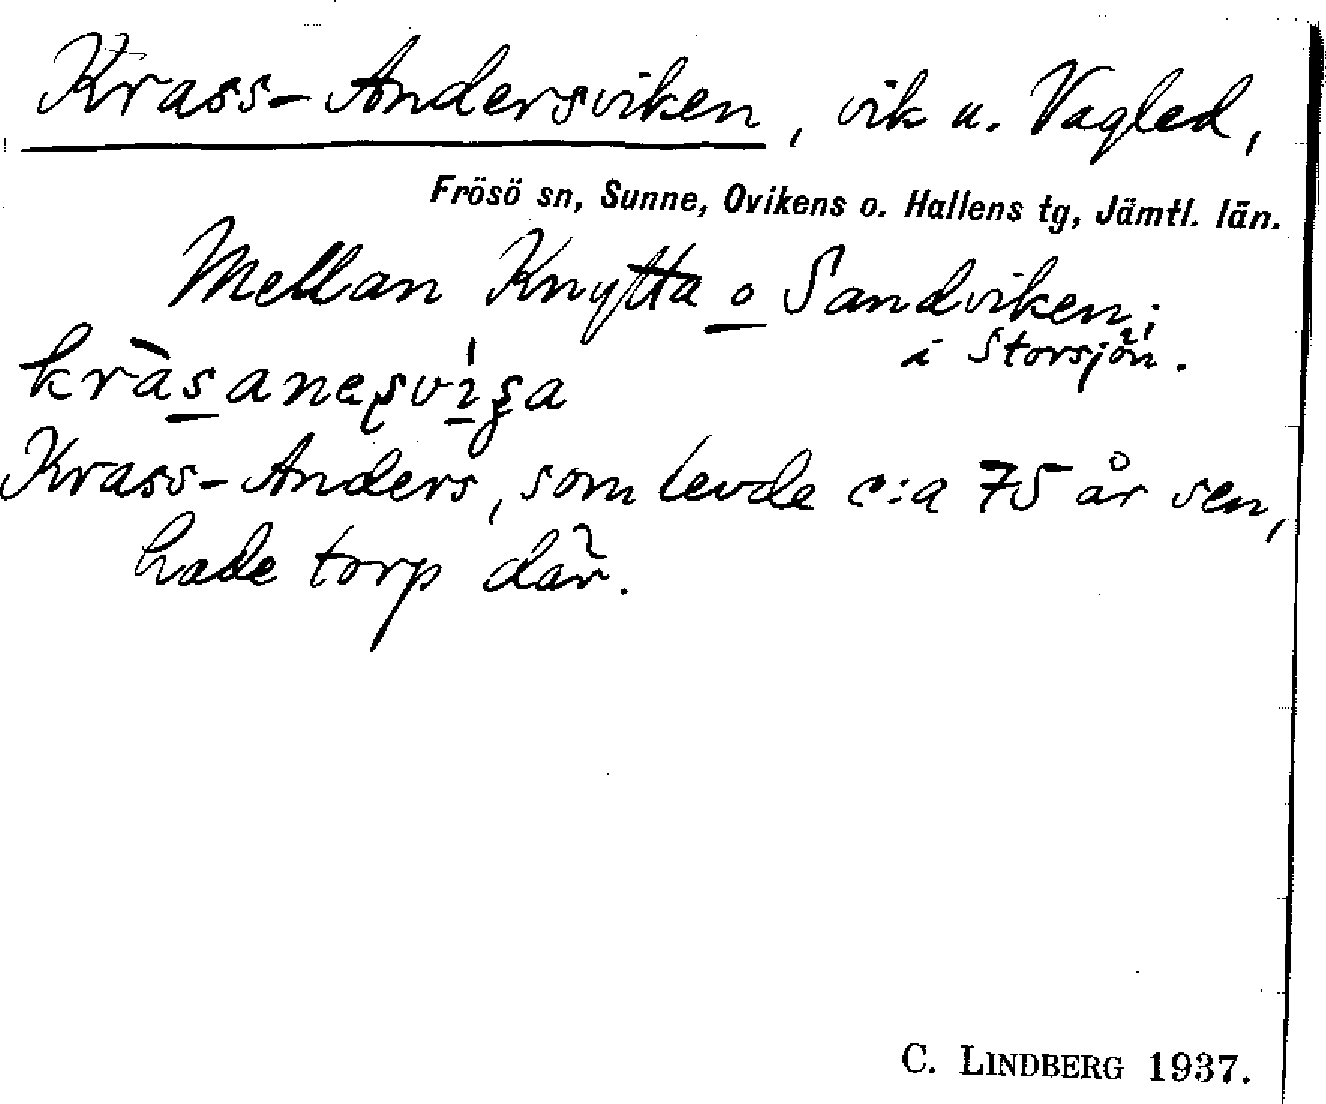 Krass-Andersviken, vik u. Vagled,
Frösö sn, Sunne, Ovikens o. Hallens tg, Jämtl. län.
Mellan Knytta o Sandviken;
i Storsjön.
Krass-Anders, som levde c:a 75 år sen,
hade torp där.
C. LINDBERG 1937.